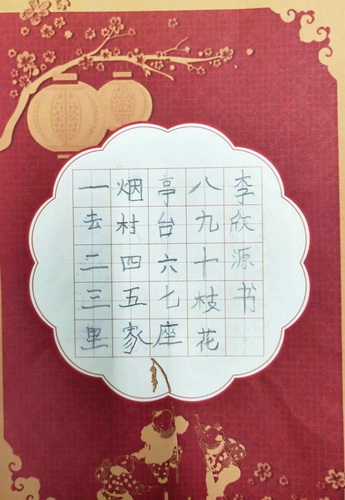 一去二三里
烟村四五家
亭台六七座
八九十枝花
李欣源书